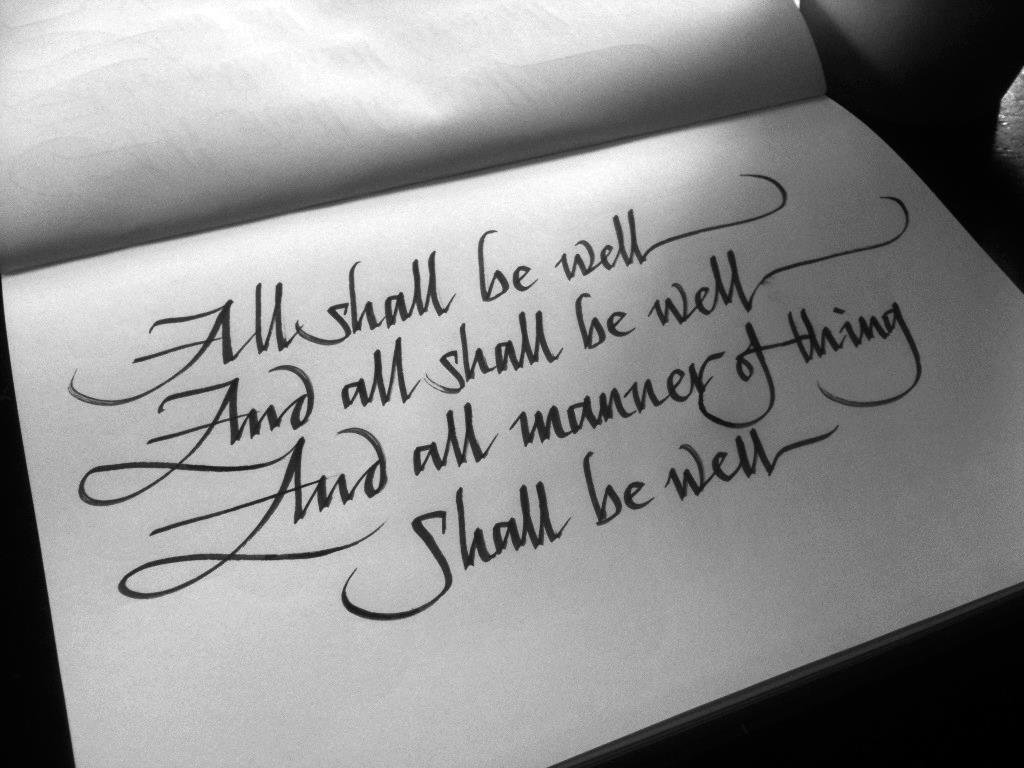 All shall be well
And all shall be well
And all manner of thing
Shall be well